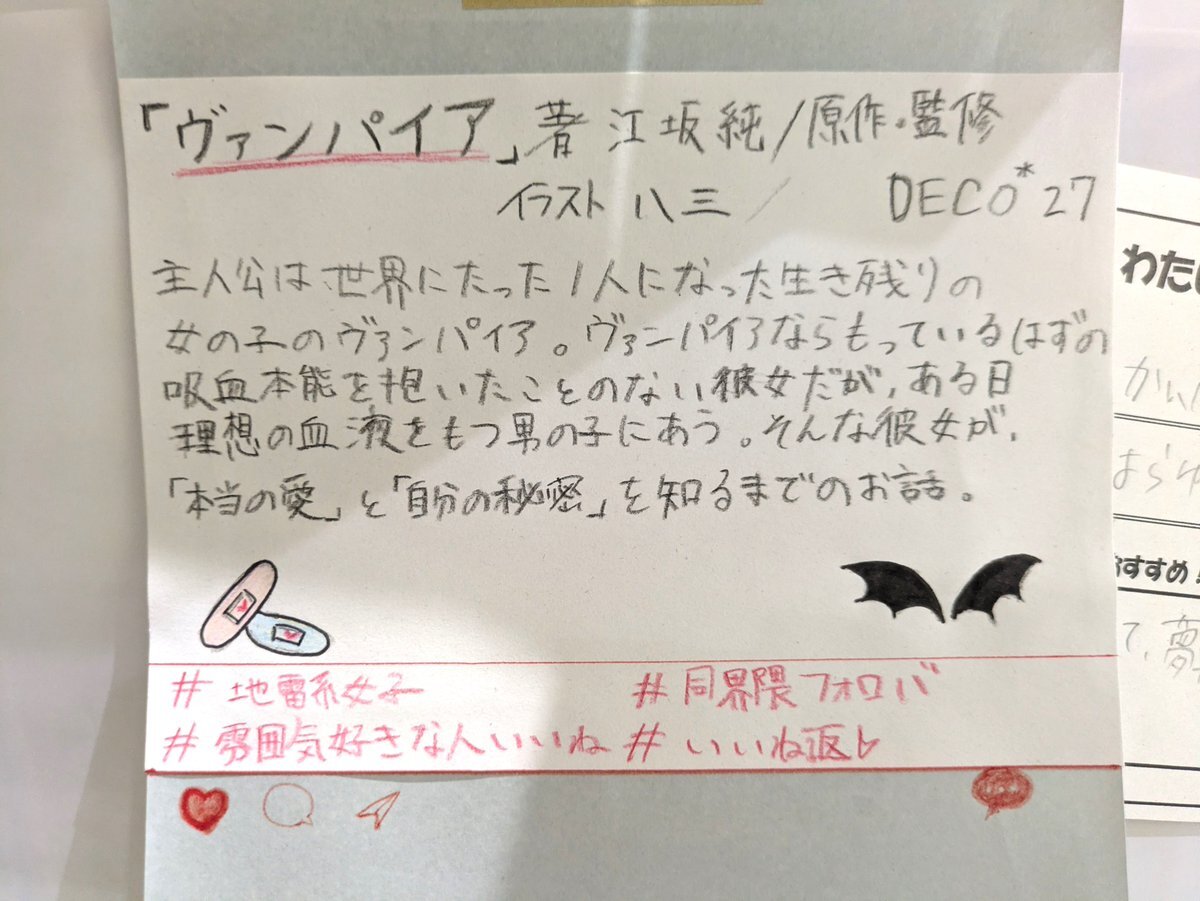 「ヴァンパイア」著 江坂純/原作・監修
イラスト 八三/ DECO*27
主人公は世界にたった1人になった生き残りの
女の子のヴァンパイア。ヴァンパイアならもっているはずの
吸血本能を抱いたことのない彼女だが、ある日
理想の血液をもつ男の子にあう。そんな彼女が、
「本当の愛」と「自分の秘密」を知るまでのお話。
#地雷系女子 #同界隈フォロバ
#雰囲気好きな人いいね #いいね返し
わた
はらゆ
おすすめ!
て、夢